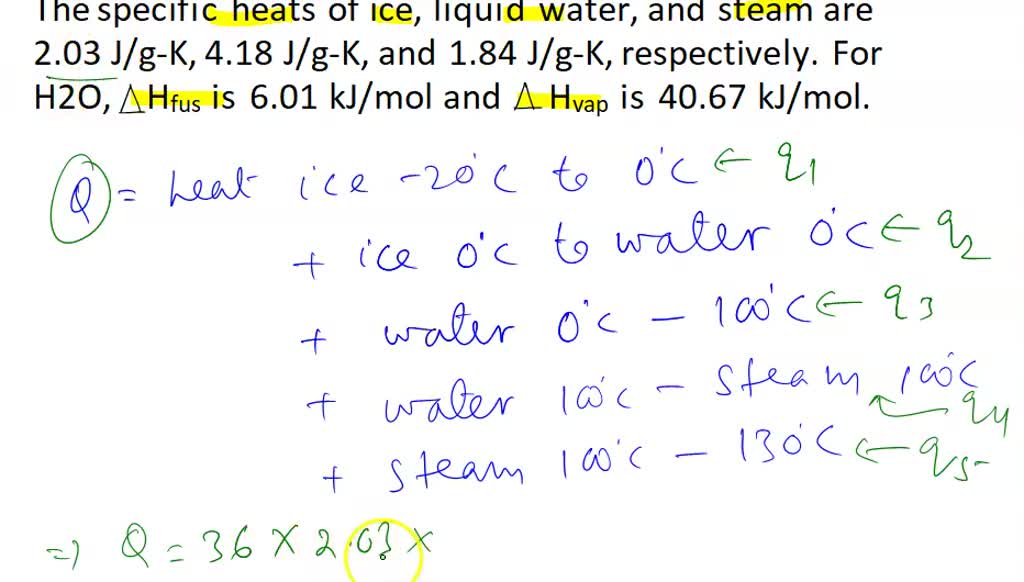 The specific heats of ice, liquid water, and steam are
2.03 J/g-K, 4.18 J/g-K, and 1.84 J/g-K, respectively. For
H2O, △Hfus is 6.01 kJ/mol and △ Hvap is 40.67 kJ/mol.
Q = heat ice -20°C to 0°C ← q1
+ ice 0°C to water 0°C ← q2
+ water 0°C - 100°C ← q3
+ water 100°C - steam 100°C ← q4
+ steam 100°C - 130°C ← q5
=> Q = 36 × 2.03 ×